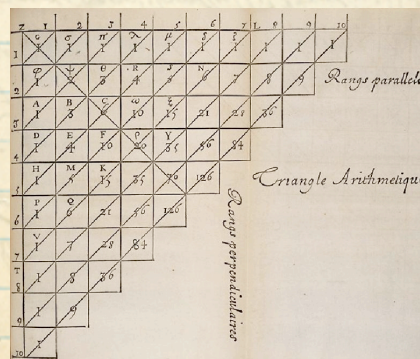 Z 1 2 3 4 5 6 7 L 8 9 10
1 G 1 σ 1 π 1 λ 1 μ 1 δ 1 ζ 1 1 1 1
2 φ 1 ψ 2 θ 3 R 4 S 5 N 6 7 8 9
3 A 1 B 3 C 6 ω 10 ξ 15 21 28 36
4 D 1 E 4 F 10 ρ 20 Y 35 56 84
5 H 1 M 5 K 15 35 70 126
6 P 1 Q 6 21 56 126
7 V 1 7 28 84
T 8 1 8 36
9 1 9
10 1
Rangs parallele
Triangle Arithmetique
Rangs perpendiculaires